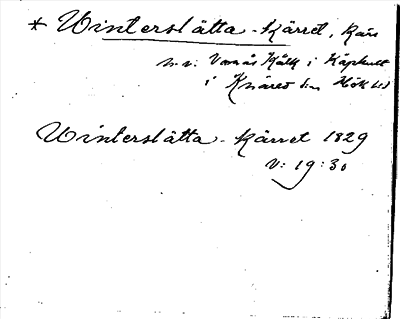 * Winterslätta-kärret, Kärr
n.v. Vanås Källh i Käphult
i Knäred sn Hök hd
Winterslätta-kärret 1829
V: 19:30